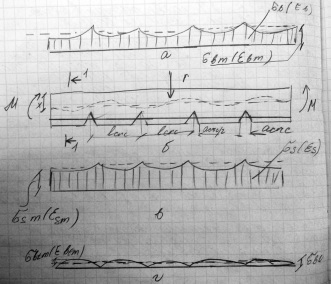 σb(εb)
а
σbm(εbm)
1
r
M
M
x
1
lcrc
lcrc
acrc
acrc
б
σs(εs)
σsm(εsm)
в
σbtm(εbtm)
г